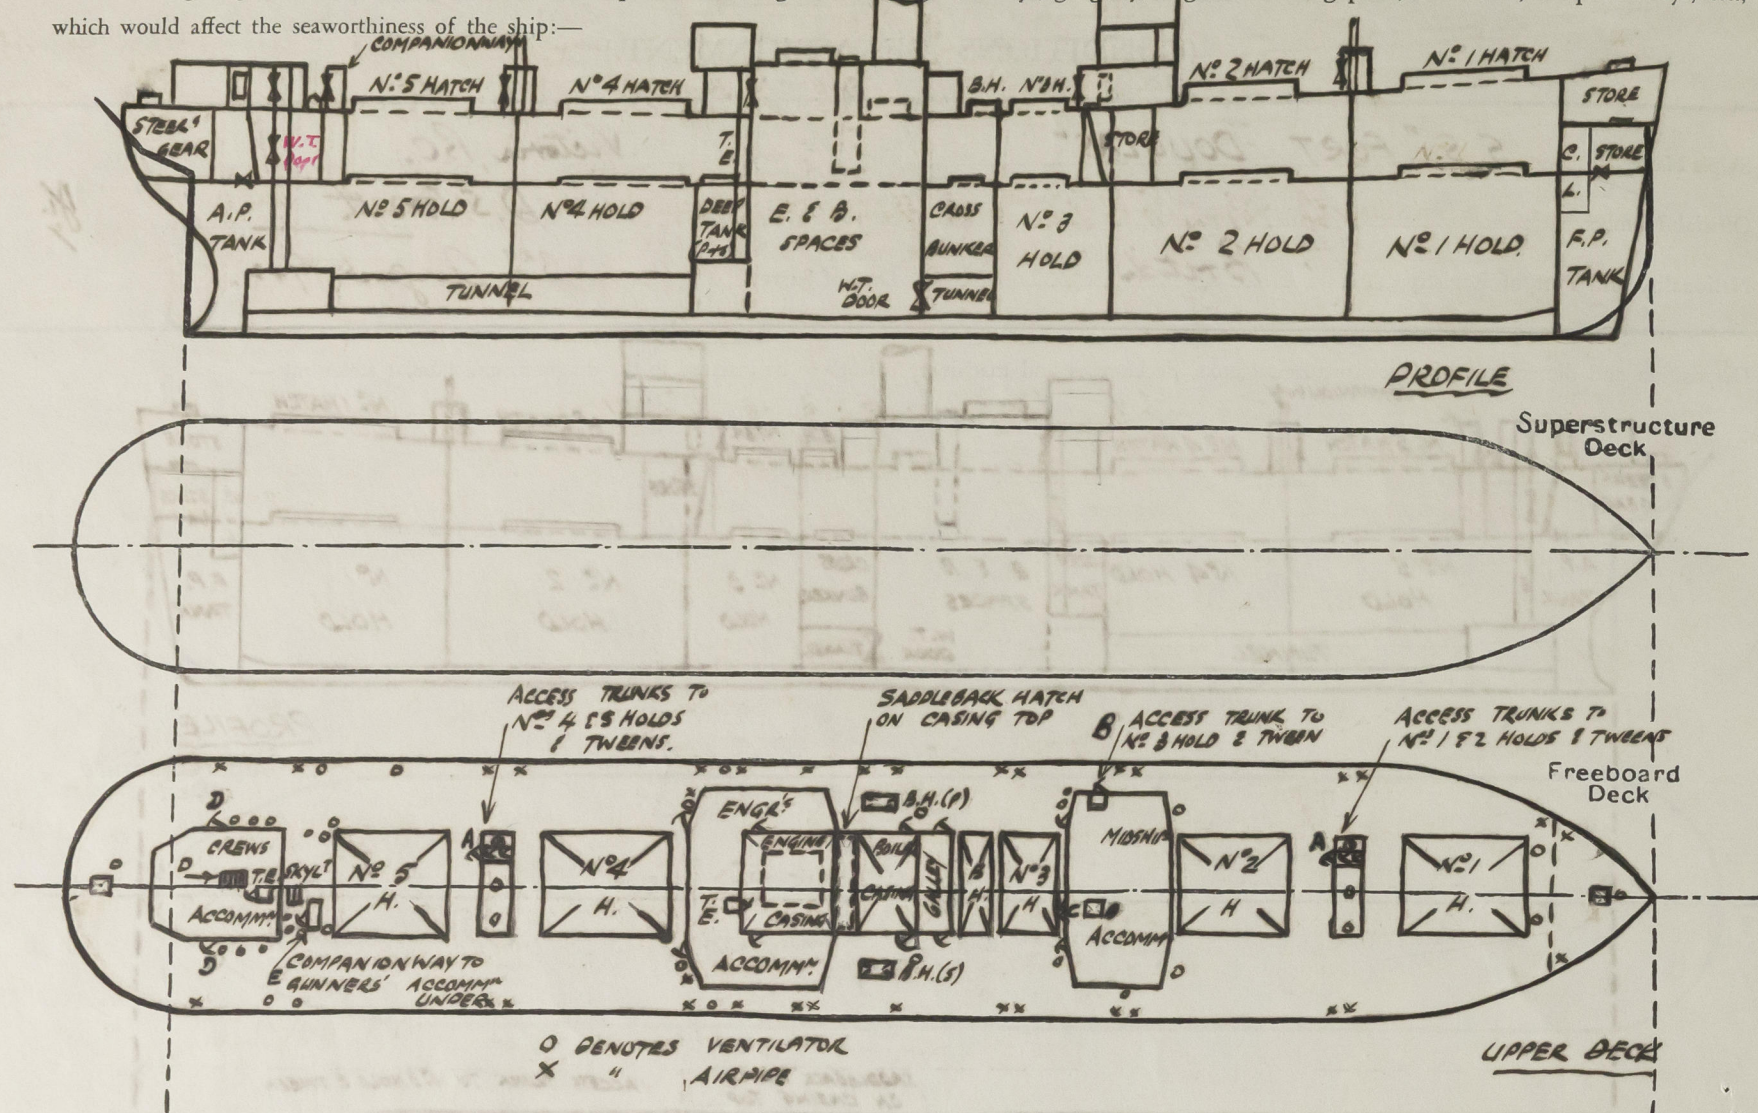 which would affect the seaworthiness of the ship:—
COMPANIONWAY
Nº 5 HATCH
Nº 4 HATCH
B.H.
Nº 3 H.
Nº 2 HATCH
Nº 1 HATCH
STEERG
GEAR
W.T.
T.
E.
STORE
STORE
C.
L.
STORE
A.P.
TANK
Nº 5 HOLD
Nº 4 HOLD
DEEP
TANK
(P+S)
E. & B.
SPACES
CROSS
BUNKER
Nº 3
HOLD
Nº 2 HOLD
Nº 1 HOLD.
F.P.
TANK
TUNNEL
W.T.
DOOR
TUNNEL
PROFILE
Superstructure
Deck
ACCESS TRUNKS TO
Nºs 4 & 5 HOLDS
& TWEENS.
SADDLEBACK HATCH
ON CASING TOP
B
ACCESS TRUNK TO
Nº 3 HOLD & TWEEN
ACCESS TRUNKS TO
Nºs 1 & 2 HOLDS & TWEENS
Freeboard
Deck
D
CREWS
D
T.E.
SKYLT
ACCOMMN.
D
Nº 5
H.
A
Nº 4
H.
ENGR'S
ENGINE
CASING
T.
E.
ACCOMMN.
BOILER
CASING
GALLEY
B.H.(P)
B.H.(S)
B
H.
Nº 3
H
C
MIDSHIP
ACCOMMN
Nº 2
H
A
Nº 1
H.
E
COMPANIONWAY TO
GUNNERS' ACCOMMN
UNDER
O DENOTES VENTILATOR
X " AIRPIPE
UPPER DECK